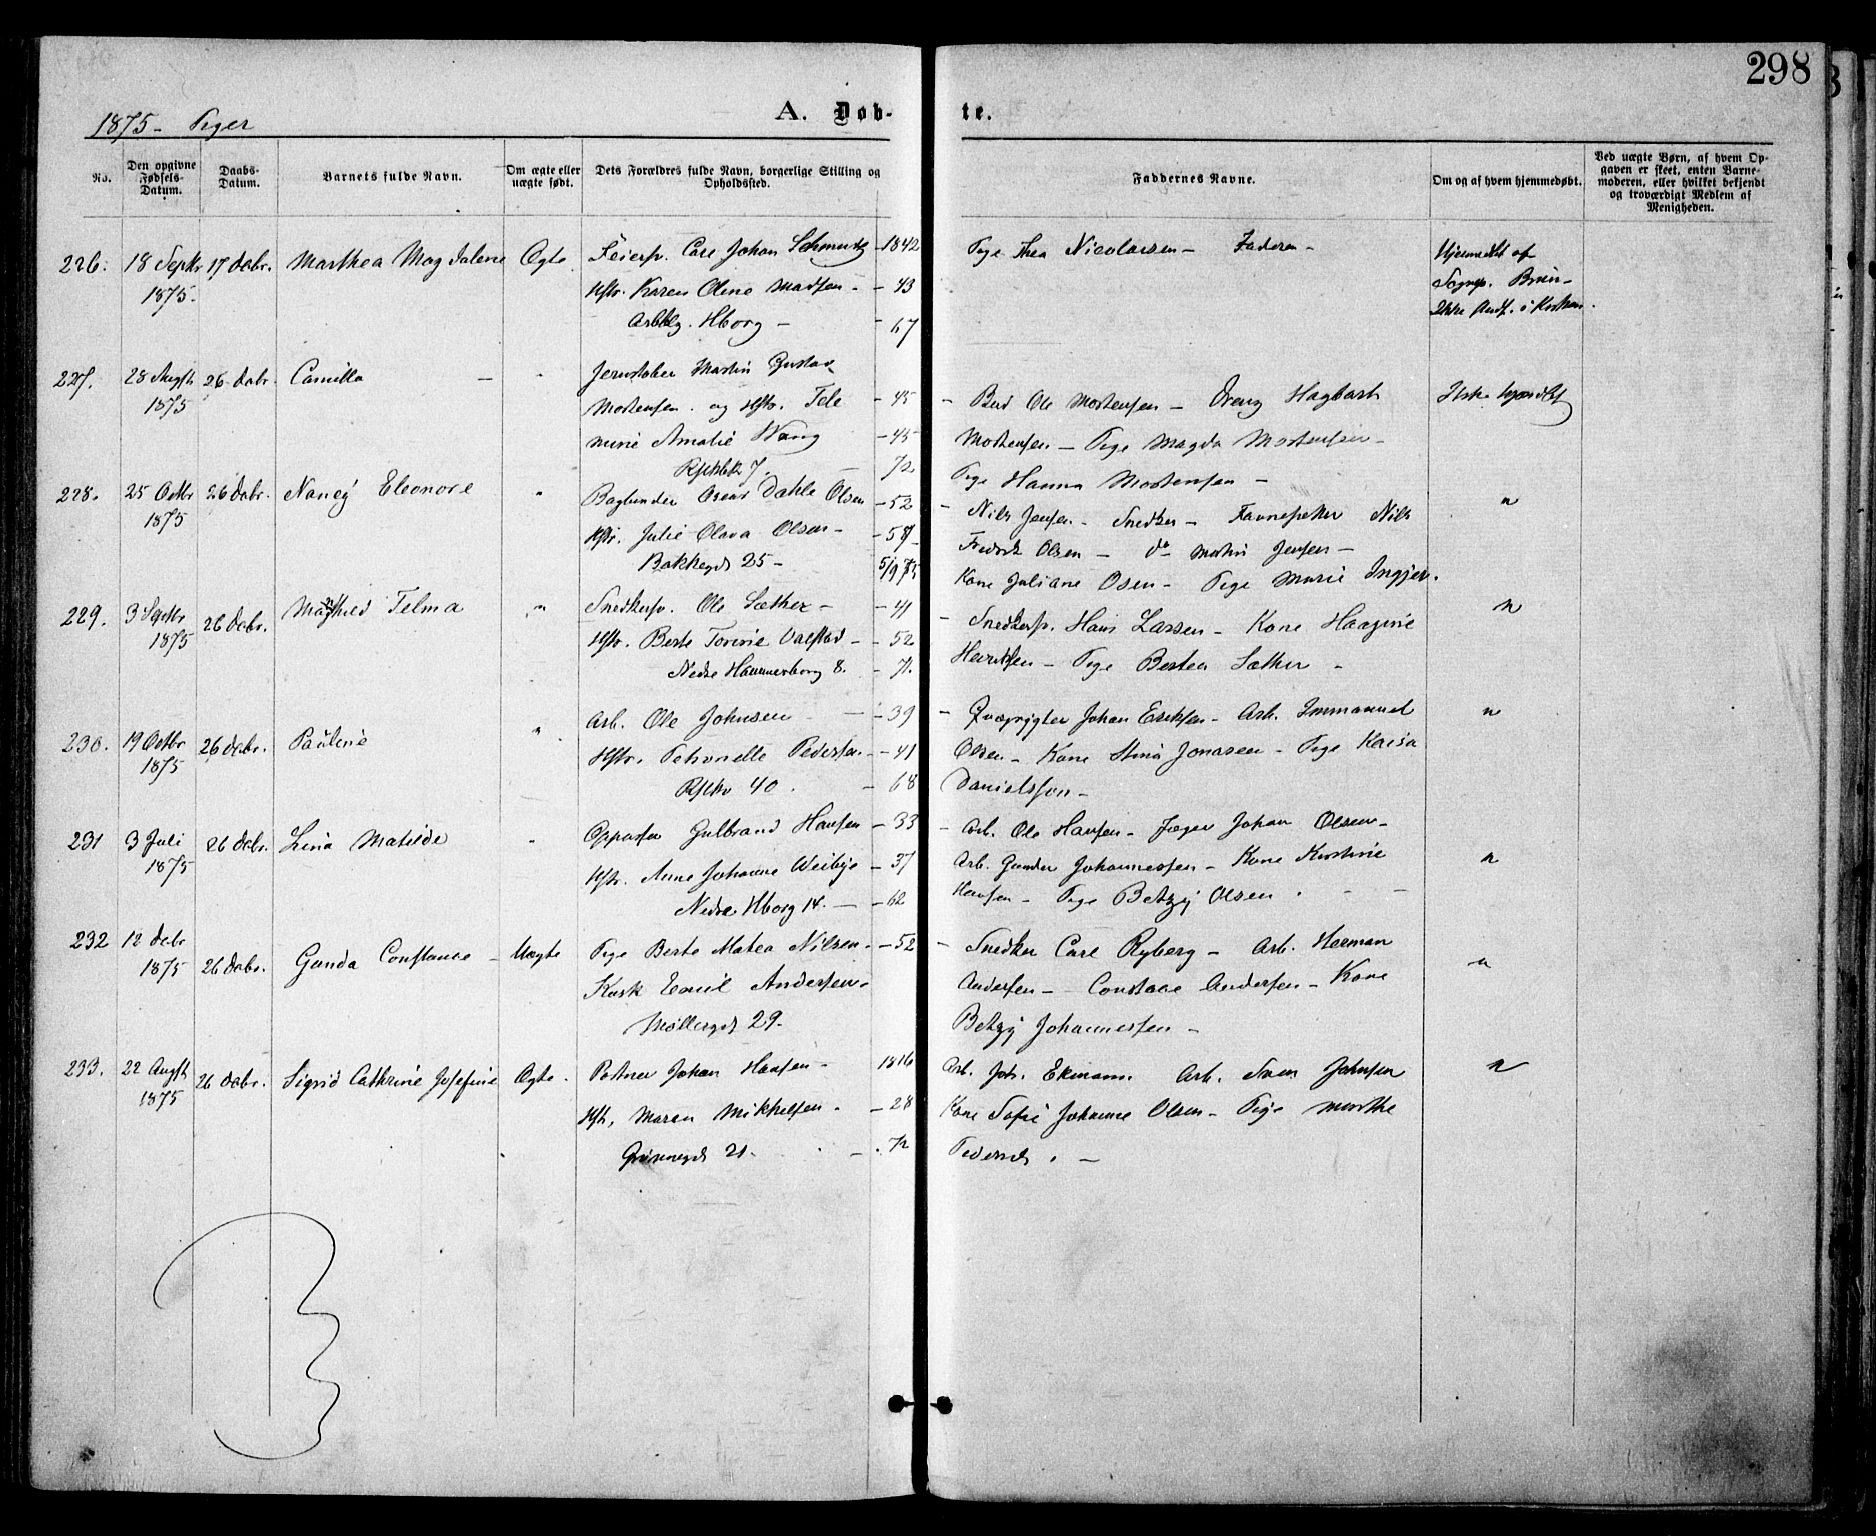 298
1875 - Piger
A. Døb-
te.
No.
Den opgivne Fødsels-Datum.
Daabs-Datum.
Barnets fulde Navn.
Om ægte eller uægte født.
Dets Forældres fulde Navn, borgerlige Stilling og Opholdssted.
Faddernes Navne.
Om og af hvem hjemmedøbt.
Ved uægte Børn, af hvem Opgaven er skeet, enten Barnemoderen, eller hvilket bekjendt og troværdigt Medlem af Menigheden.
226. 18 Septr 17 Debr. Marthea Magdalene Ægte Feiersv. Carl Johan Schmidt - 1842 Pige Thea Nicolaisen - Faderen - Hjemmedbt af
1875. Hstr. Karen Oline Madsen - - 43 Sognep. Bruun -
Hborg - - 67 Ikke i Kirken.
227. 28 Augst 26 Debr. Camilla - " Jernstøber Martin Gustav
1875 Mortensen og Hstr. Pete - 45 - Ole Mortensen - Dreng Hagbart Ikke hjemdbt
mine Amalie Wang - 45 Mortensen - Pige Magda Mortensen -
7. - 72 Pige Hanna Mortensen -
228. 25 Octbr 26 Debr. Nancy Eleonore " Oscar Dahle Olsen - 52 - Nils Jensen - Snedker - Nils "
1875 Hstr. Julie Olava Olsen - - 51 Fredrik Olsen - do Martin Jensen -
Bakkegd 25 - 5/9 75 Kone Juliane Osen - Pige Marie Ingier.
229. 3 Septbr 26 Debr. Mathied Telma " Snedkersv. Ole Sæther - - 41 - Snedkersv. Hans Larsen - Kone Haagine "
1875 Hstr. Berte Torine Valstad - - 52 Henriksen - Pige Bertea Sæther -
Nedre Hammerborg 8. - 71.
230. 19 Octbr 26 Debr. Pauline " Arb. Ole Johnsen - - 39 - Qvægrygter Johan Eriksen - Arb. Immanuel "
1875 Hstr. Petronelle Pedersen - - 41 Olsen - Kone Stina Jonasen - Pige Kaisa
40. - 68 Danielsson -
231 3 Juli 26 Debr. Lina Matilde " Oppasser Gulbrand Hansen - 33 - Arb. Ole Hansen - Jæger Johan Olsen -
1875 Hstr. Anne Johanne Weibye - 37 Arb. Gunder Johannessen - Kone Kristine "
Nedre Hborg 14. - - 62 Hansen - Pige Betzy Olsen . - -
232 12 Debr 26 Debr. Gunda Constance - Uægte Pige Berte Matea Nilsen - - 52 - Snedker Carl Ryberg - Arb. Herman "
1875 Kusk Emil Andersen - Andersen - Constace Andersen - Kone
Møllergd 29. Betzy Johannessen -
233. 22 Augst 26 Debr. Sigrid Cathrine Josefine Ægte. Johan Hansen - 1816 Arb. Joh. Ekmann. Arb. Sven Johnsen "
1875 Hstr, Maren Mikkelsen. - 28 Kone Sofie Johanne Olsen - Pige Marthe
Grønnegd 21. - . 72 Pedersd. -